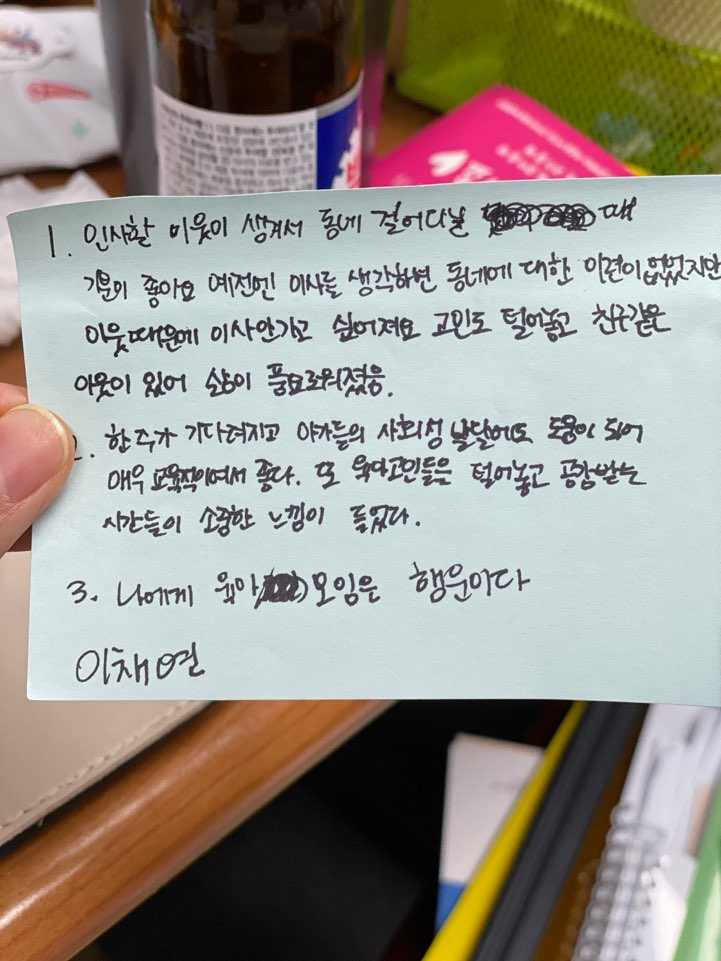 1. 인사할 이웃이 생겨서 동네 걸어다닐 때
기분이 좋아요 예전엔 이사를 생각하면 동네에 대한 미련이 없었지만
이웃때문에 이사안가고 싶어져요 고민도 털어놓고 친구같은
이웃이 있어 삶이 풍요로워졌음.
2. 한주가 기다려지고 아가들의 사회성 발달에도 도움이 되어
매우 교육적이여서 좋다. 또 육아고민들은 털어놓고 공감받는
시간들이 소중한 느낌이 들었다.
3. 나에게 육아 모임은 행운이다
이채연